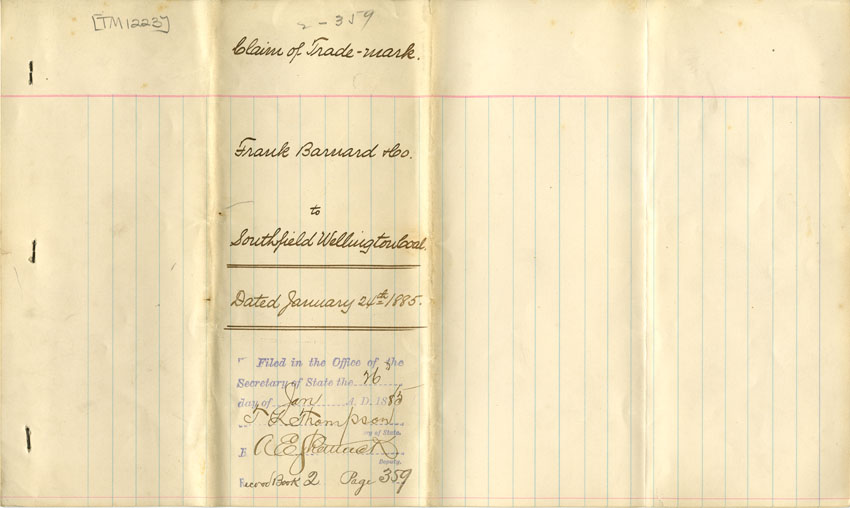 [TM1223]
2-359
Claim of Trade-mark.
Frank Barnard & Co.
to
Southfield Wellington Coal.
Dated January 24th 1885.
Filed in the Office of the
Secretary of State the 26
day of Jan A.D. 1885
T L Thompson
ry of State.
A E
Deputy.
Record Book 2 Page 359